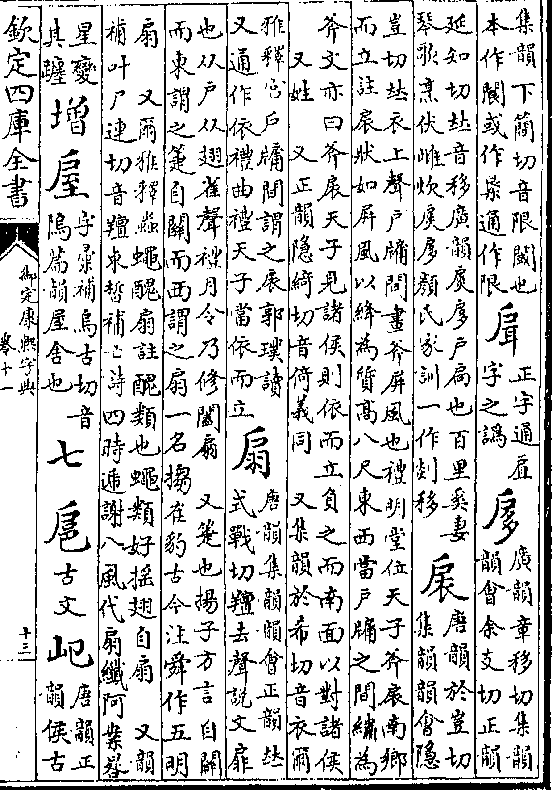 集韻下𥳑切音限閾也
本作閬或作㫰通作限
正字通启
字之譌
扅
廣韻章移切集韻
韻會余支切正韻
延知切𠀤音移廣韻扊扅戶扃也百里奚妻
琴歌烹伏雌炊扊扅顔氏家訓一作剡移
扆
唐韻於豈切
集韻韻會隱
豈切𠀤衣上聲戶牖間畫斧屏風也禮明堂位天子斧扆南鄉
而立註扆狀如屏風以絳為質高八尺東西當戶牖之間繡為
斧文亦曰斧扆天子見諸侯則依而立負之而南面以對諸侯
又姓 又正韻隱綺切音倚義同 又集韻於希切音衣爾
雅釋宮戶牖間謂之扆郭璞讀
又通作依禮曲禮天子當依而立
扇
唐韻集韻韻會正韻𠀤
式戰切羶去聲說文扉
也从戶从翅省聲禮月令乃修闔扇 又箑也揚子方言自關
而東謂之箑自關而西謂之扇一名搧崔豹古今注舜作五明
扇 又爾雅釋蟲蠅醜扇註醜類也蠅類好搖翅自扇 又韻
補叶尸連切音羶束晳補亡詩四時遞謝八風代扇纖阿案晷
星變
其躔
增
字彙補烏古切音
隖篇韻屋舍也
七
扈
古文
唐韻正
韻侯古
欽定四庫全書
御定康熙字典
卷十一
十三